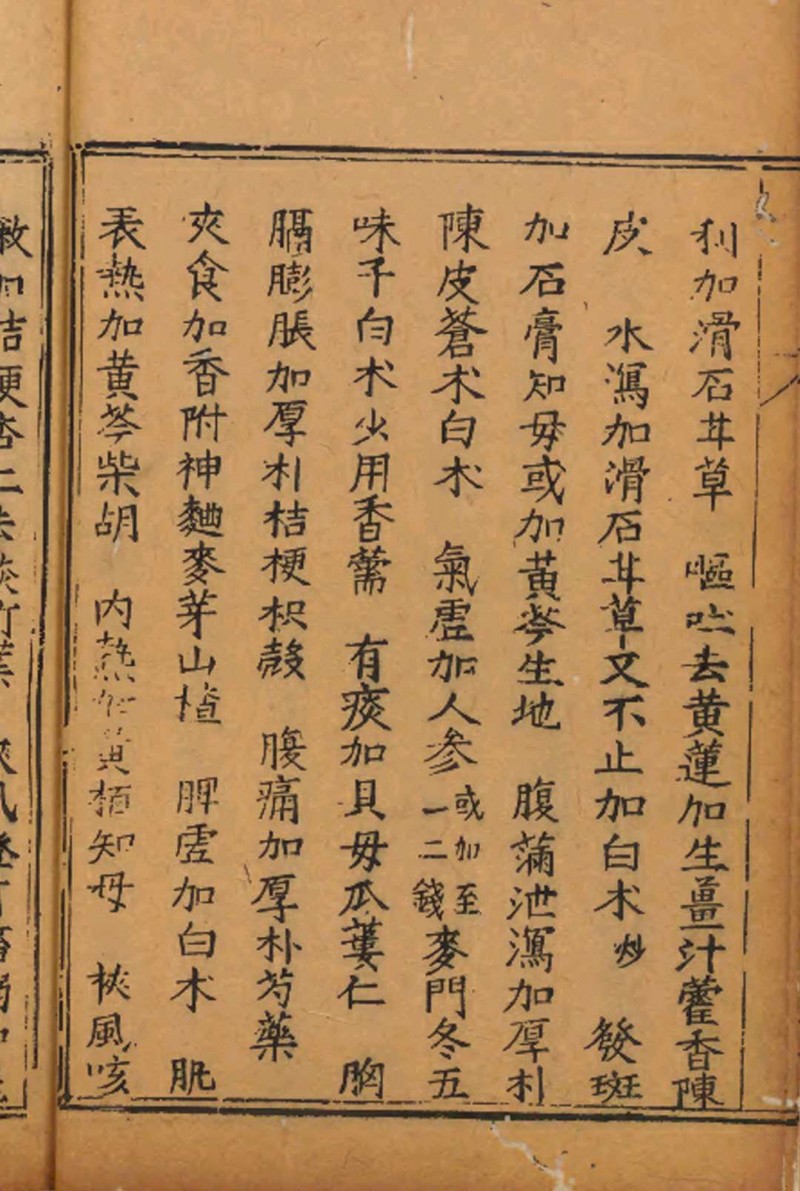 利加滑石甘草　嘔吐去黄蓮加生薑汁藿香陳
皮　水瀉加滑石甘草又不止加白术炒　發斑
加石膏知毋或加黄芩生地　腹滿泄瀉加厚朴
陳皮蒼术白术　氣虛加人參或加至一二錢麥門冬五
味千白术少用香薷　有痰加貝毋瓜蔞仁　胸
膈膨脹加厚朴桔梗枳殼　腹痛加厚朴芍藥
夾食加香附神麯麥芽山楂　脾虛加白术
表熱加黄芩柴胡　内熱加黄栢知母　挾風咳